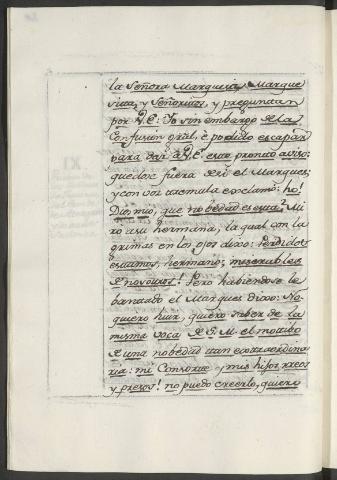 la Señora Marquesa, Marque
sita, y Señoritas, y preguntan
por V.E: Yo sin embargo de la
Confusion gral, è podido escapar
para dar à V.E. este pronto aviso:
quedose fuera de si el Marques;
y con voz tremula exclamò: ho!
Dios mio, que nobedad es esta? Mi
rò a su hermana, la qual con la
grimas en los ojos dixo: perdidos
estamos, hermano; miserables
de nosotros! Pero habiendose le
bantado el Marques dixo: No
quiero huir, quiero saber de la
misma boca de S. M. el motibo
de una nobedad tan extraordina
ria: mi Consorte y mis hijos rreos
y presos! no puedo creerlo, quiero